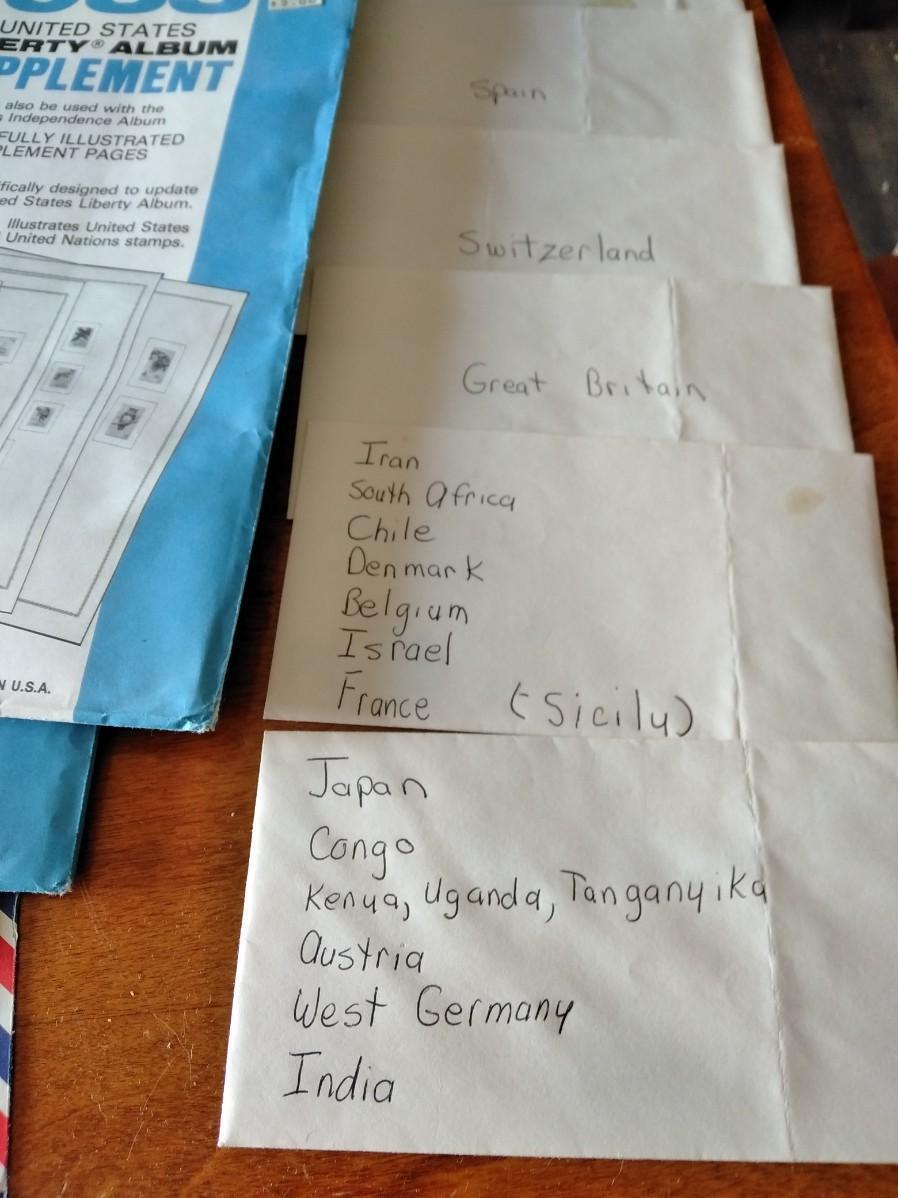 UNITED STATES
ERTY® ALBUM
PPLEMENT
also be used with the
s Independence Album
FULLY ILLUSTRATED
LEMENT PAGES
ifically designed to update
ed States Liberty Album.
Illustrates United States
United Nations stamps.
N U.S.A.
Spain
Switzerland
Great Britain
Iran
South Africa
Chile
Denmark
Belgium
Israel
France (Sicily)
Japan
Congo
Kenya, Uganda, Tanganyika
Austria
West Germany
India